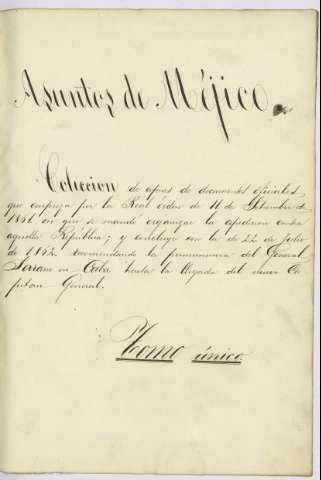 Asuntos de Méjico.
Coleccion de copias de documentos oficiales,
que empieza por la Real órden de 11 de Setiembre de
1861 en que se mandó organizar la espedicion contra
aquella República; y concluye con la de 22 de Julio
de 1862 recomendando la permanencia del General
Serrano en Cuba hasta la llegada del nuevo Ca-
pitan General.
Tomo único